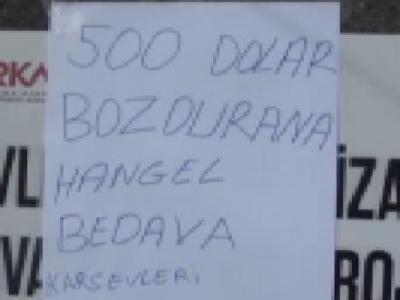 500 DOLAR
BOZDURANA
HANGEL
BEDAVA
KARSEVLERİ
RKA
VL
İZA
VA
ROJ